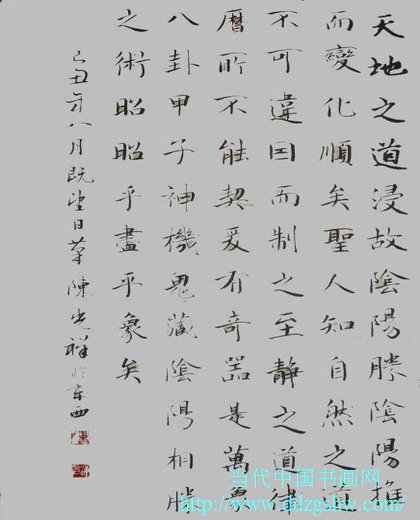 天地之道浸故陰陽勝陰陽推
而變化順矣聖人知自然之道
不可違因而制之至靜之道律
曆所不能契爰有奇器是萬象
八卦甲子神機鬼藏陰陽相勝
之術昭昭乎盡乎象矣
己丑年八月既望日草陳光祥於京西
当代中国书画网
http://www.ddzgshw.com